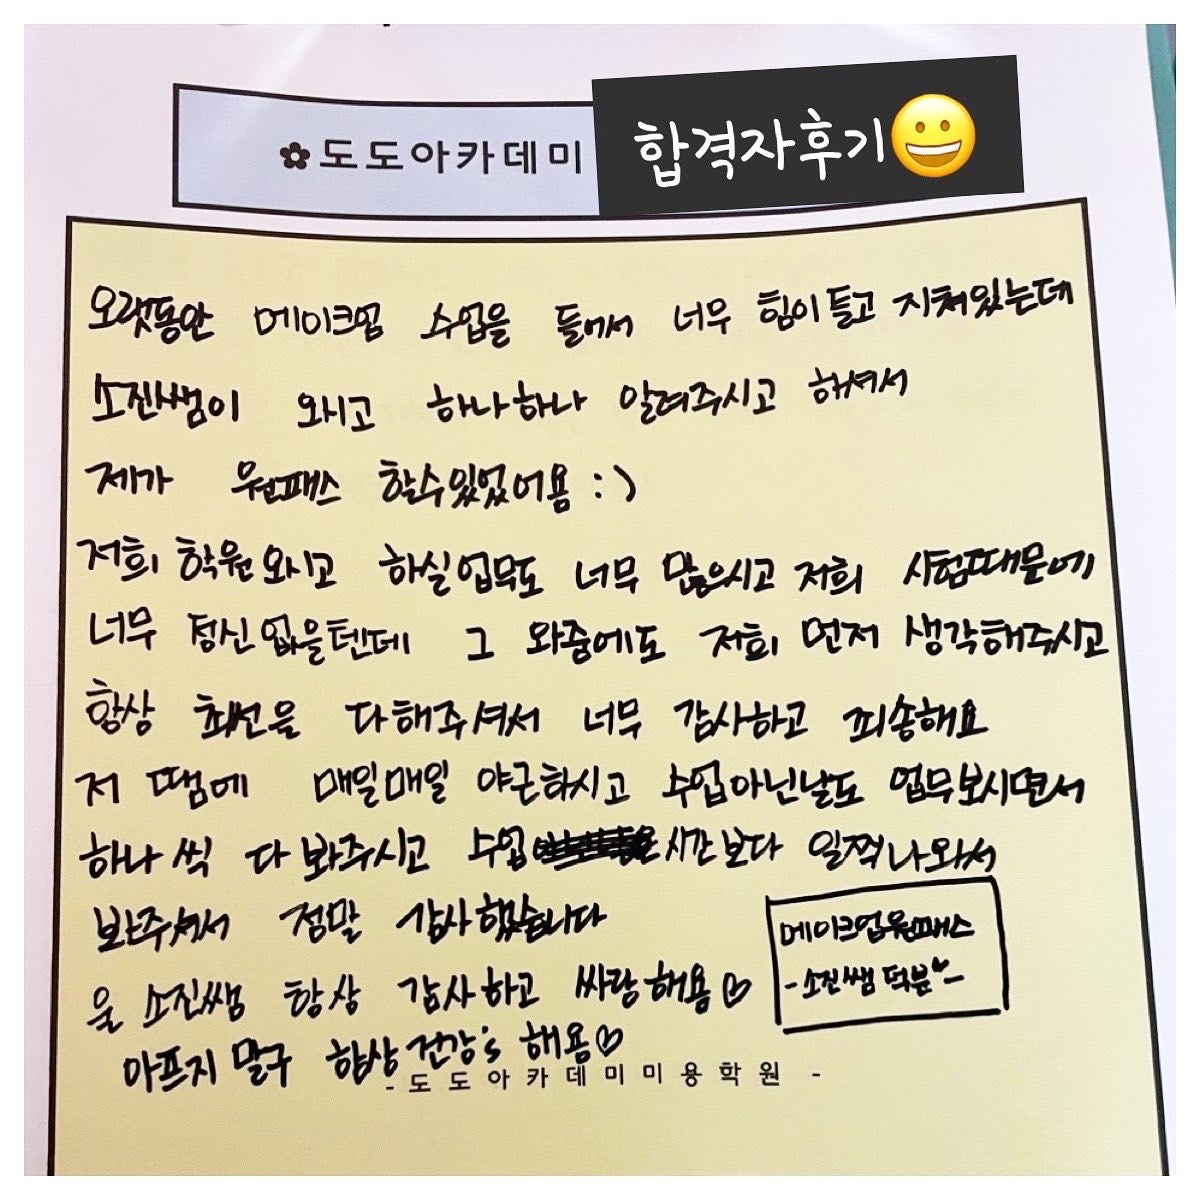 ✿도도아카데미
합격자후기😀
오랫동안 메이크업 수업을 들어서 너무 힘이들고 지쳐있는데
소진쌤이 오시고 하나하나 알려주시고 해셔서
제가 원패스 할수있었어용 :)
저희 학원오시고 하실업무도 너무 많으시고 저희 시험때문에
너무 정신없을텐데 그 와중에도 저희 먼저 생각해주시고
항상 최선을 다해주셔서 너무 감사하고 죄송해요
저 땜에 매일매일 야근하시고 수업아닌날도 업무보시면서
하나씩 다 봐주시고 수업 시간보다 일찍나와서
봐주셔서 정말 감사했습니다
울 소진쌤 항상 감사하고 싸랑해용♡
아프지 말구 항상 건강's 해용♡
메이크업원패스
-소진쌤 덕분"-
- 도도아카데미미용학원 -